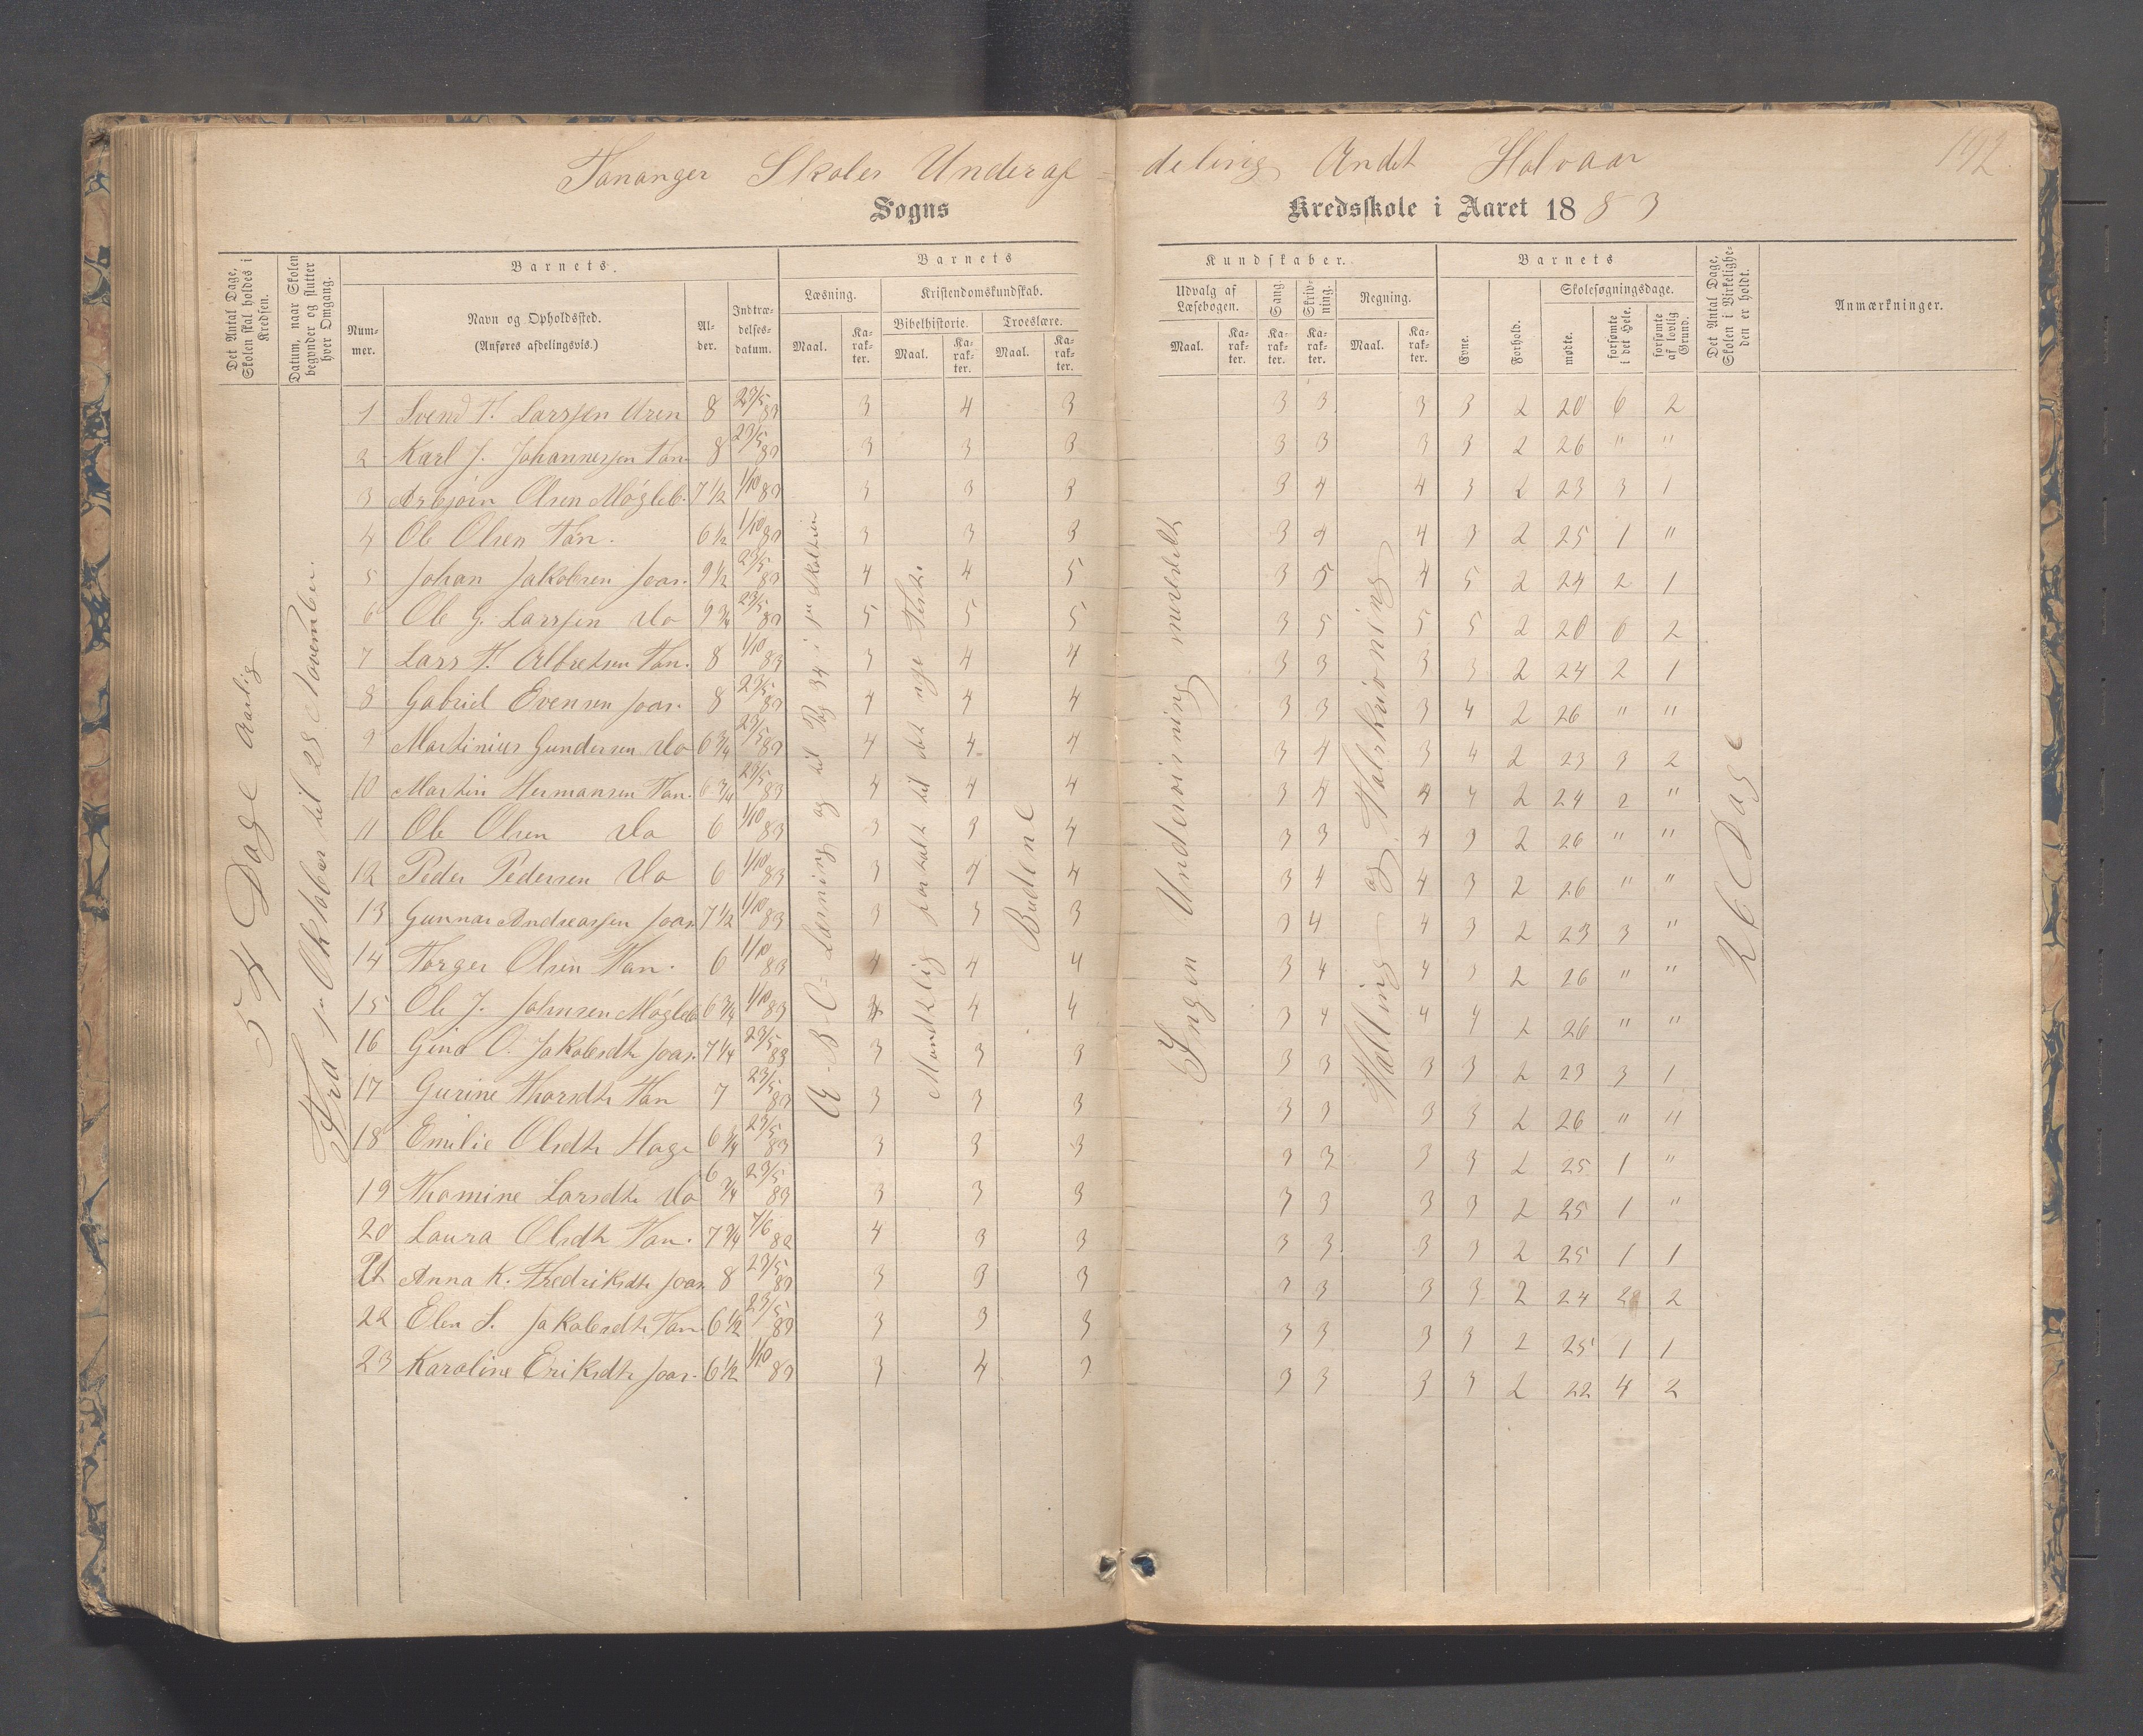 Tananger Skoles Underaf= deling Andet Halvaar 192.
Sogns Kredsskole i Aaret 1883
Det Antal Dage, Skolen skal holdes i Kredsen.
Datum, naar Skolen begynder og slutter hver Omgang.
Barnets.
Num- mer.
Navn og Opholdssted.
(Anføres afdelingsvis.)
Al- der.
Indtræ- delses- datum.
Barnets
Læsning.
Maal.
Ka- rak- ter.
Kristendomskundskab.
Bibelhistorie.
Maal.
Ka- rak- ter.
Troeslære.
Maal.
Ka- rak- ter.
Kundskaber.
Udvalg af Læsebogen.
Maal.
Ka- rak- ter.
Sang.
Ka- rak- ter.
Skriv- ning.
Ka- rak- ter.
Regning.
Maal.
Ka- rak- ter.
Barnets
Evne.
Forhold.
Skolesøgningsdage.
mødte.
forsømte i det Hele.
forsømte af lovlig Grund.
Det Antal Dage, Skolen i Virkelighe- den er holdt.
Anmærkninger.
54 Dage aarlig
Fra 1ste Oktober til 28 November.
A-B-C=Læsning og til Pag 34 i
Mundtlig fortalt til det nye Teste
Budene
Ingen Undervisning meddelt
Tælling og Talskrivning
26 Dage
1 Svend T. Larssen Uren 8 23/5 83 3 4 3 3 3 3 3 2 20 6 2
2 Karl J. Johannessen Tan. 8 23/5 83 3 3 3 3 3 3 3 2 26 " "
3 Asbjørn Olsen Møgleb. 7 1/2 1/10 83 3 3 3 3 4 4 3 2 23 3 1
4 Ole Olsen Tan. 6 1/2 1/10 83 3 3 3 3 4 4 3 2 25 1 "
5 Johan Jakobsen Joas. 9 1/2 23/5 83 4 4 5 3 5 4 5 2 24 2 1
6 Ole G. Larssen do 9 3/4 23/5 83 5 5 5 3 5 5 5 2 20 6 2
7 Lars T. Albretsen Tan. 8 1/10 83 3 4 4 3 3 3 3 2 24 2 1
8 Gabriel Evensen Joas. 8 23/5 83 4 4 4 3 3 3 4 2 26 " "
9 Martinius Gundersen do 6 3/4 23/5 83 4 4 4 3 4 3 4 2 23 3 2
10 Martin Hermansen Tan. 6 3/4 23/5 83 4 4 4 3 4 4 4 2 24 2 "
11 Ole Olsen do 6 1/10 83 3 3 4 3 3 4 3 2 26 " "
12 Peder Pedersen do 6 1/10 83 3 4 4 3 4 4 3 2 26 " "
13 Gunnar Andreassen Joas. 7 1/2 1/10 83 3 3 3 3 4 4 3 2 23 3 "
14 Torger Olsen Tan. 6 1/10 83 4 4 4 3 4 4 3 2 26 " "
15 Ole J. Johnsen Møgleb 6 3/4 1/10 83 4 4 4 3 4 4 4 2 26 " "
16 Gina O. Jakobsdtr Joas. 7 1/4 23/5 83 3 3 3 3 3 3 3 2 23 3 1
17 Gurine Thorsdtr Tan 7 23/5 83 3 3 3 3 3 3 3 2 26 " "
18 Emilie Olsdtr Hage 6 3/4 23/5 83 3 3 3 3 3 3 3 2 25 1 "
19 Thomine Larsdtr do 6 3/4 23/5 83 3 3 3 3 3 3 3 2 25 1 "
20 Laura Olsdtr Tan. 7 3/4 7/6 82 4 3 3 3 3 3 3 2 25 1 1
21 Anna K. Fredriksdtr Joas. 8 23/5 83 3 3 3 3 3 3 3 2 24 2 2
22 Elen S. Jakobsdtr Tan. 6 1/2 23/5 83 3 3 3 3 3 3 3 2 25 1 1
23 Karoline Eriksdtr Joas. 6 1/2 1/10 83 3 4 3 3 3 3 3 2 22 4 2